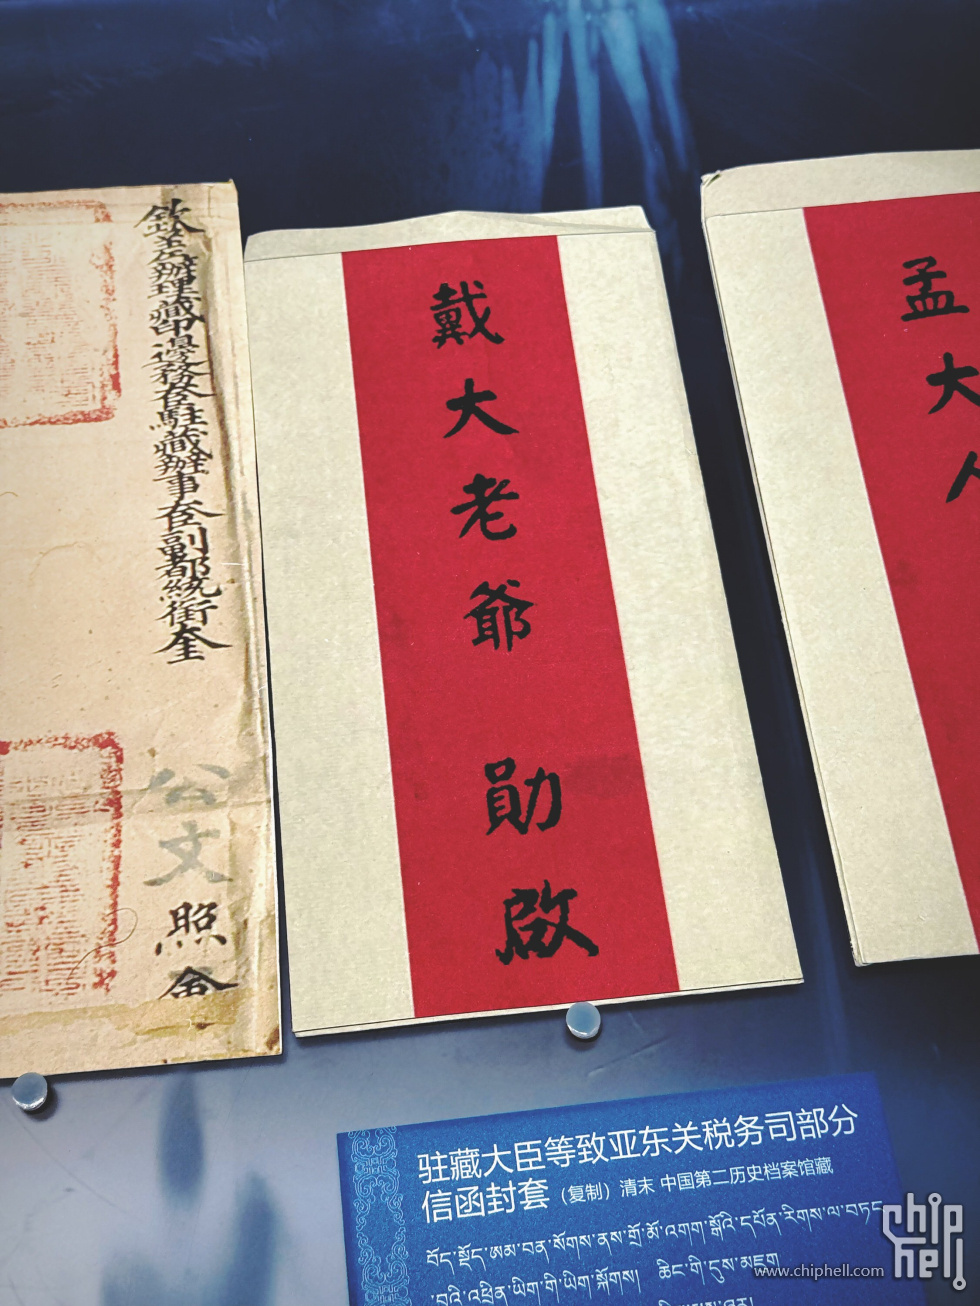 欽差辦理藏印邊務大臣駐藏辦事大臣副都統銜奎
公文
照會
戴大老爺 勛啟
孟大人
驻藏大臣等致亚东关税务司部分
信函封套（复制）清末 中国第二历史档案馆藏
བོད་སྡོད་ཨམ་བན་སོགས་ནས་གྲོ་མོ་འགག་སྒོའི་དཔོན་རིགས་ལ་བཏང
་བའི་འཕྲིན་ཡིག་གི་ཡིག་སྐོགས། ཆིང་གི་དུས་མཇུག
chip hell
www.chiphell.com